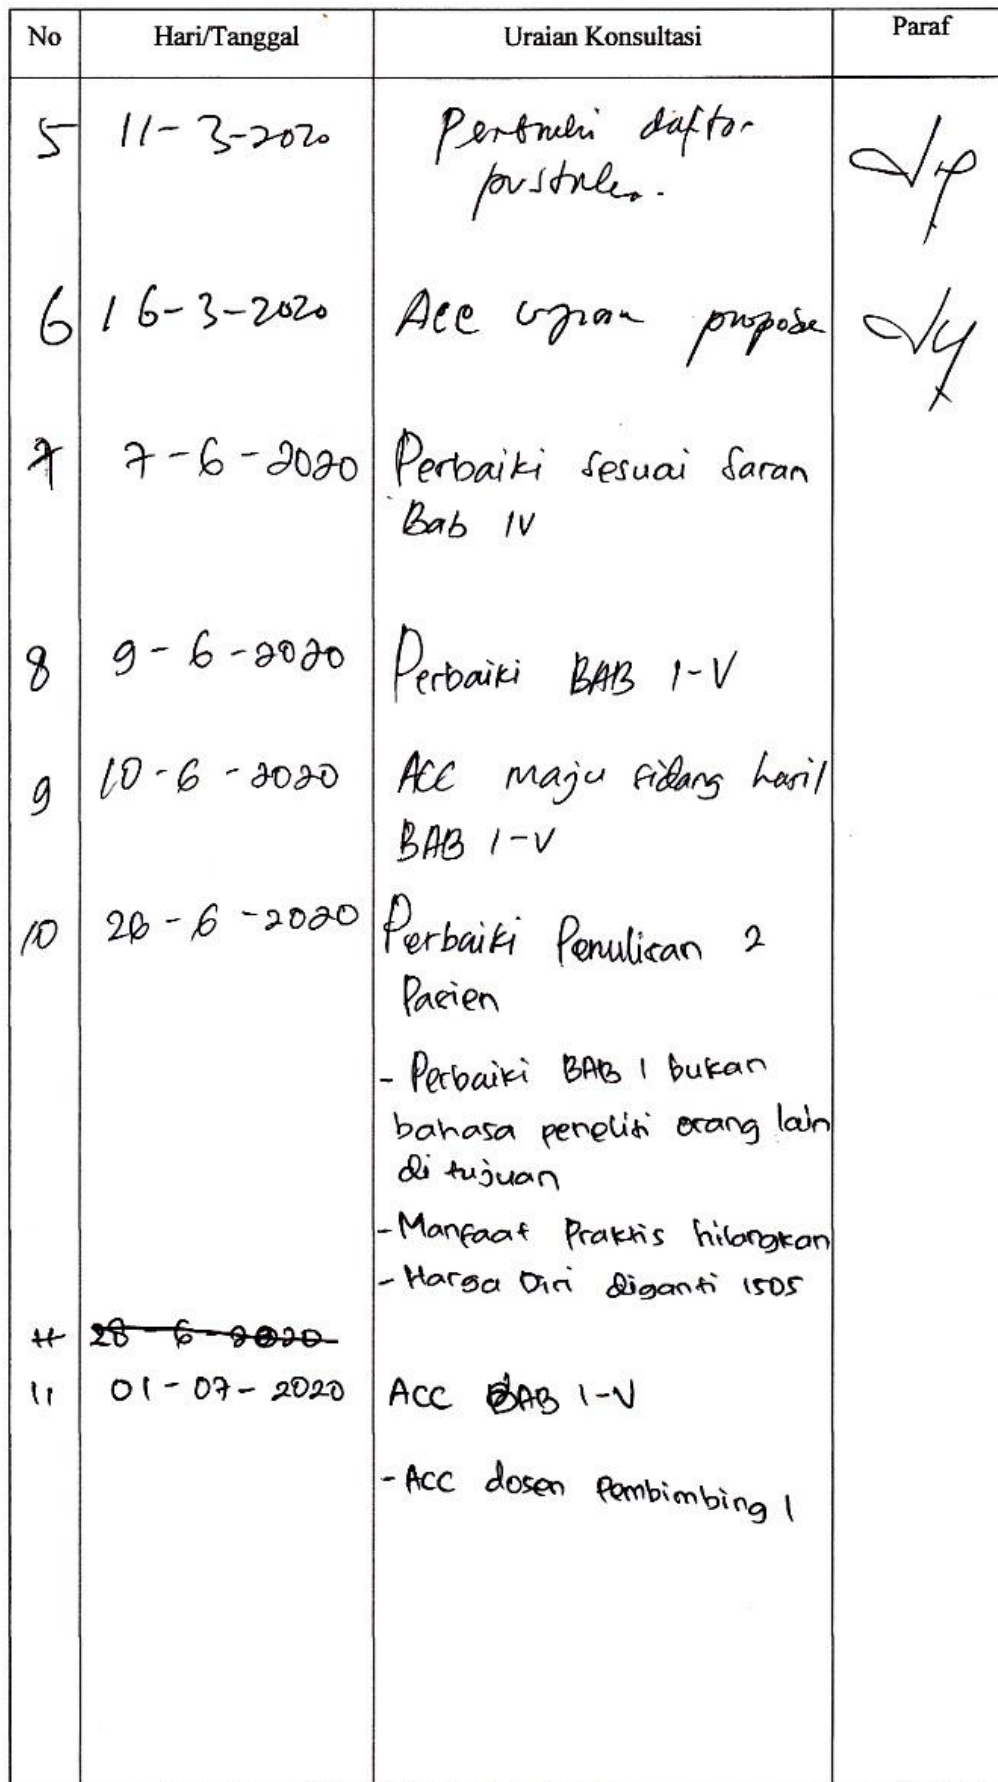 No Hari/Tanggal Uraian Konsultasi Paraf
5 11-3-2020 Perbaiki daftar
pustaka.
6 16-3-2020 Acc ujian propose
7 7-6-2020 Perbaiki sesuai saran
Bab IV
8 9-6-2020 Perbaiki BAB I-V
9 10-6-2020 ACC maju sidang hasil
BAB I-V
10 26-6-2020 Perbaiki Penulisan 2
Pasien
- Perbaiki BAB I bukan
bahasa peneliti orang lain
di tujuan
- Manfaat Praktis hilangkan
- Harga Diri diganti ISOS
11 28-6-2020
11 01-07-2020 ACC BAB I-V
- ACC dosen Pembimbing 1